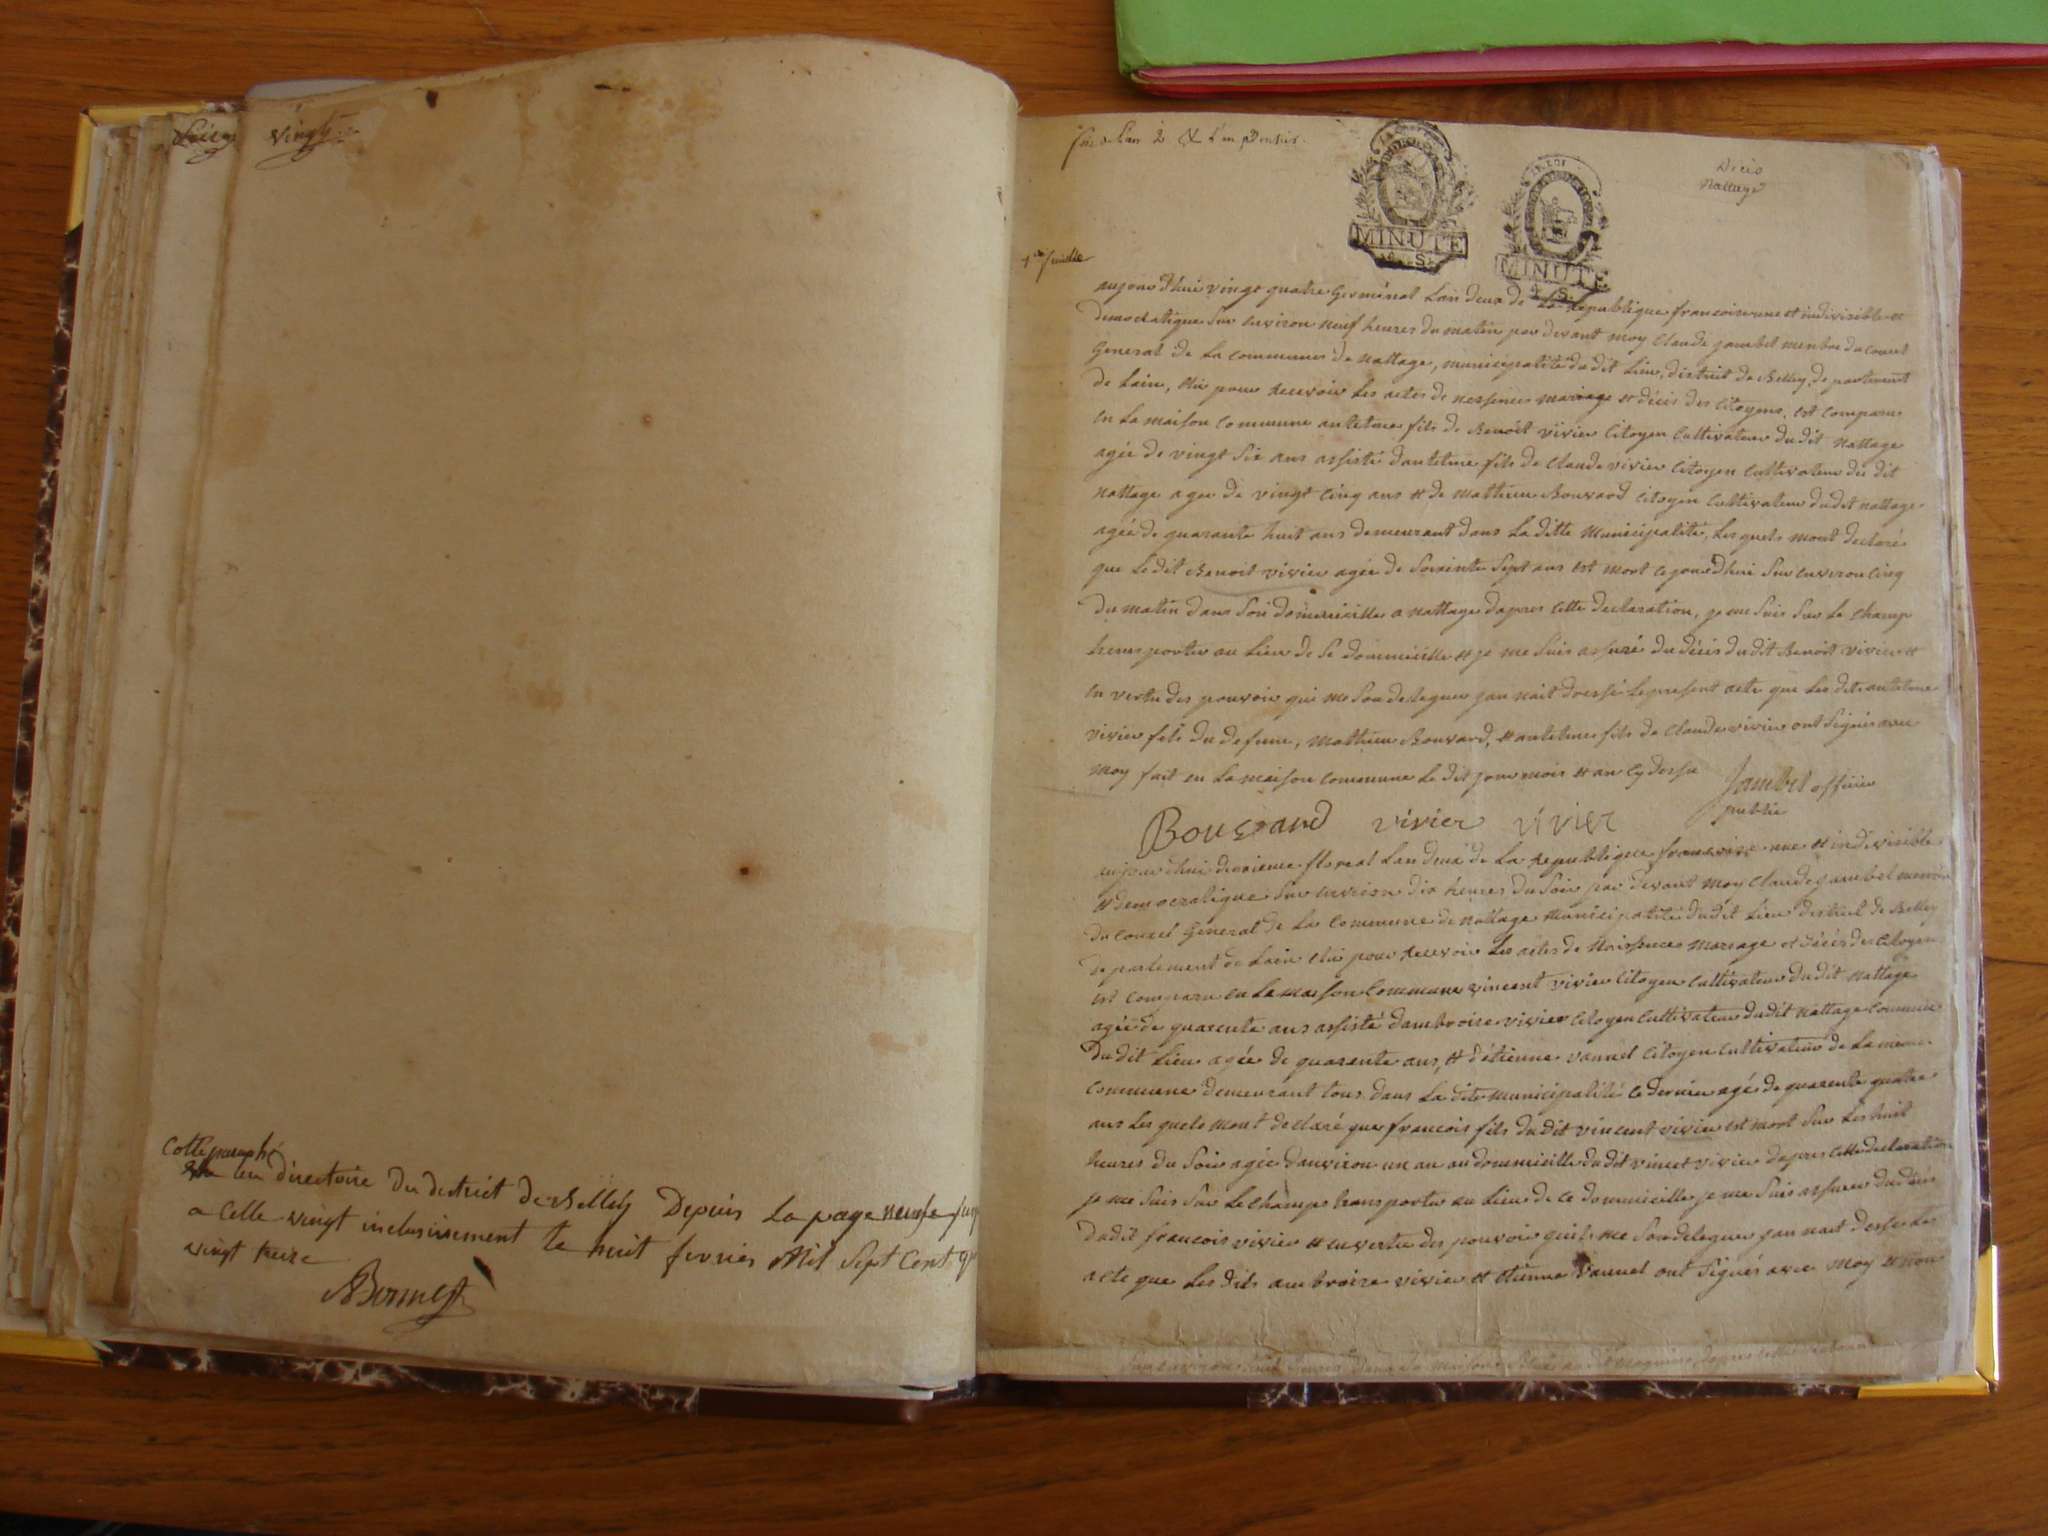 vingt
Cotté paraphé
en directoire du district de Belley Depuis la page neufe
a Celle vingt inclusivement le huit fevrier Mil Sept Cent
vingt treize
Bonnet
Décès
Nattage
LA LOI
MINUTE
4 S.
MINUTE
4 S.
1re feuille
aujourd'huit vingt quatre Germinal Lan deux de La Republique francoise une et indivisible et
democratique Sur environ neuf heures du matin par devant moy Claude jambet menbre du conset
General de La commune de nattage, municipalité du dit Lieu, district de Belley, de partement
de Lain, Elu pour Recevoir Les actes de nessences mariage et décés des Citoyens, est comparu
en La maison Commune antelme fils de Benoit vivier Citoyen Cultivateur du dit nattage
agée de vingt Six ans assisté dantelme fils de Claude vivier Citoyen Cultivateur du dit
nattage agee de vingt Cinq ans et de mathieu Bouvard Citoyen Cultivateur du dit nattage
agée de quarante huit ans demeurant dans La ditte Municipalité, Les quels mont declaré
que Le dit Benoit vivier agée de Soixinte Sept ans est mort ce jourdhui Sur environ Cinq
du matin dans Son dommicille a nattage dapres Cette declaration, je me Suis Sur Le Champ
transporter au Lieu de Se dommicille et je me Suis assuré du décés du dit Benoit vivier et
en vertu des pouvoir qui me Son deleguer jan nait dressé Le present acte que Les dits antelme
vivier fils du defunt, mathieu Bouvard, et antelme fils de Claude vivier ont Signés avec
moy fait en La maison Commune Le dit jour mois et an Cy dessu Jambet officier
public
Bouvard vivier vivier
aujourdhui deuxieme floreal Lan deux de La Republique francoise une et indivisible
et democratique Sur environ dix heures du Soir par devant moy Claude jambet menbre
du Conset General de La Commune de nattage Municipalité du dit Lieu district de Belley
departement de Lain Elu pour Recevoir Les actes de Naissence mariage et décés des Citoyens
est comparu en La maison Commune vincent vivier Citoyen Cultivateur du dit nattage
agée de quarente ans assisté dambroise vivier Citoyen Cultivateur du dit nattage Commune
du dit Lieu agée de quarente ans, et détienne vannel Citoyen Cultivateur de La meme
Commune demeurant tous dans La dite municipalité Ce dernier agé de quarente quatre
ans Les quels mont declaré que francois fils du dit vincent vivier est mort Sur Les huit
heures du Soir agée denviron un an au dommicille du dit vincet vivier dapres Cette declaration
je me Suis Sur Le Champs transporter au Lieu de Ce dommicille je me Suis assurer du décés
du dit francois vivier et en vertu des pouvoir quils me Son deleguer jan nait dresse Les
acte que Les dits ambroise vivier et étienne vannel ont Signés avec moy et non